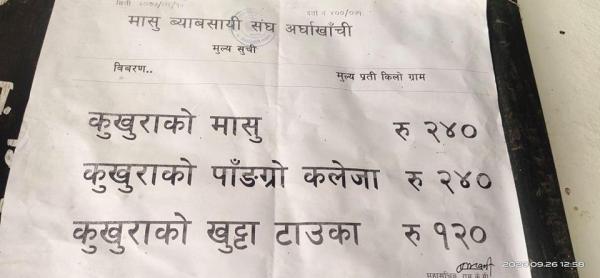 मासु ब्याबसायी संघ अर्घाखाँची
मुल्य सुची
विबरण.. मुल्य प्रती किलो ग्राम
कुखुराको मासु रु २४०
कुखुराको पाँङग्रो कलेजा रु २४०
कुखुराको खुट्टा टाउका रु १२०
2020.09.26 12:58